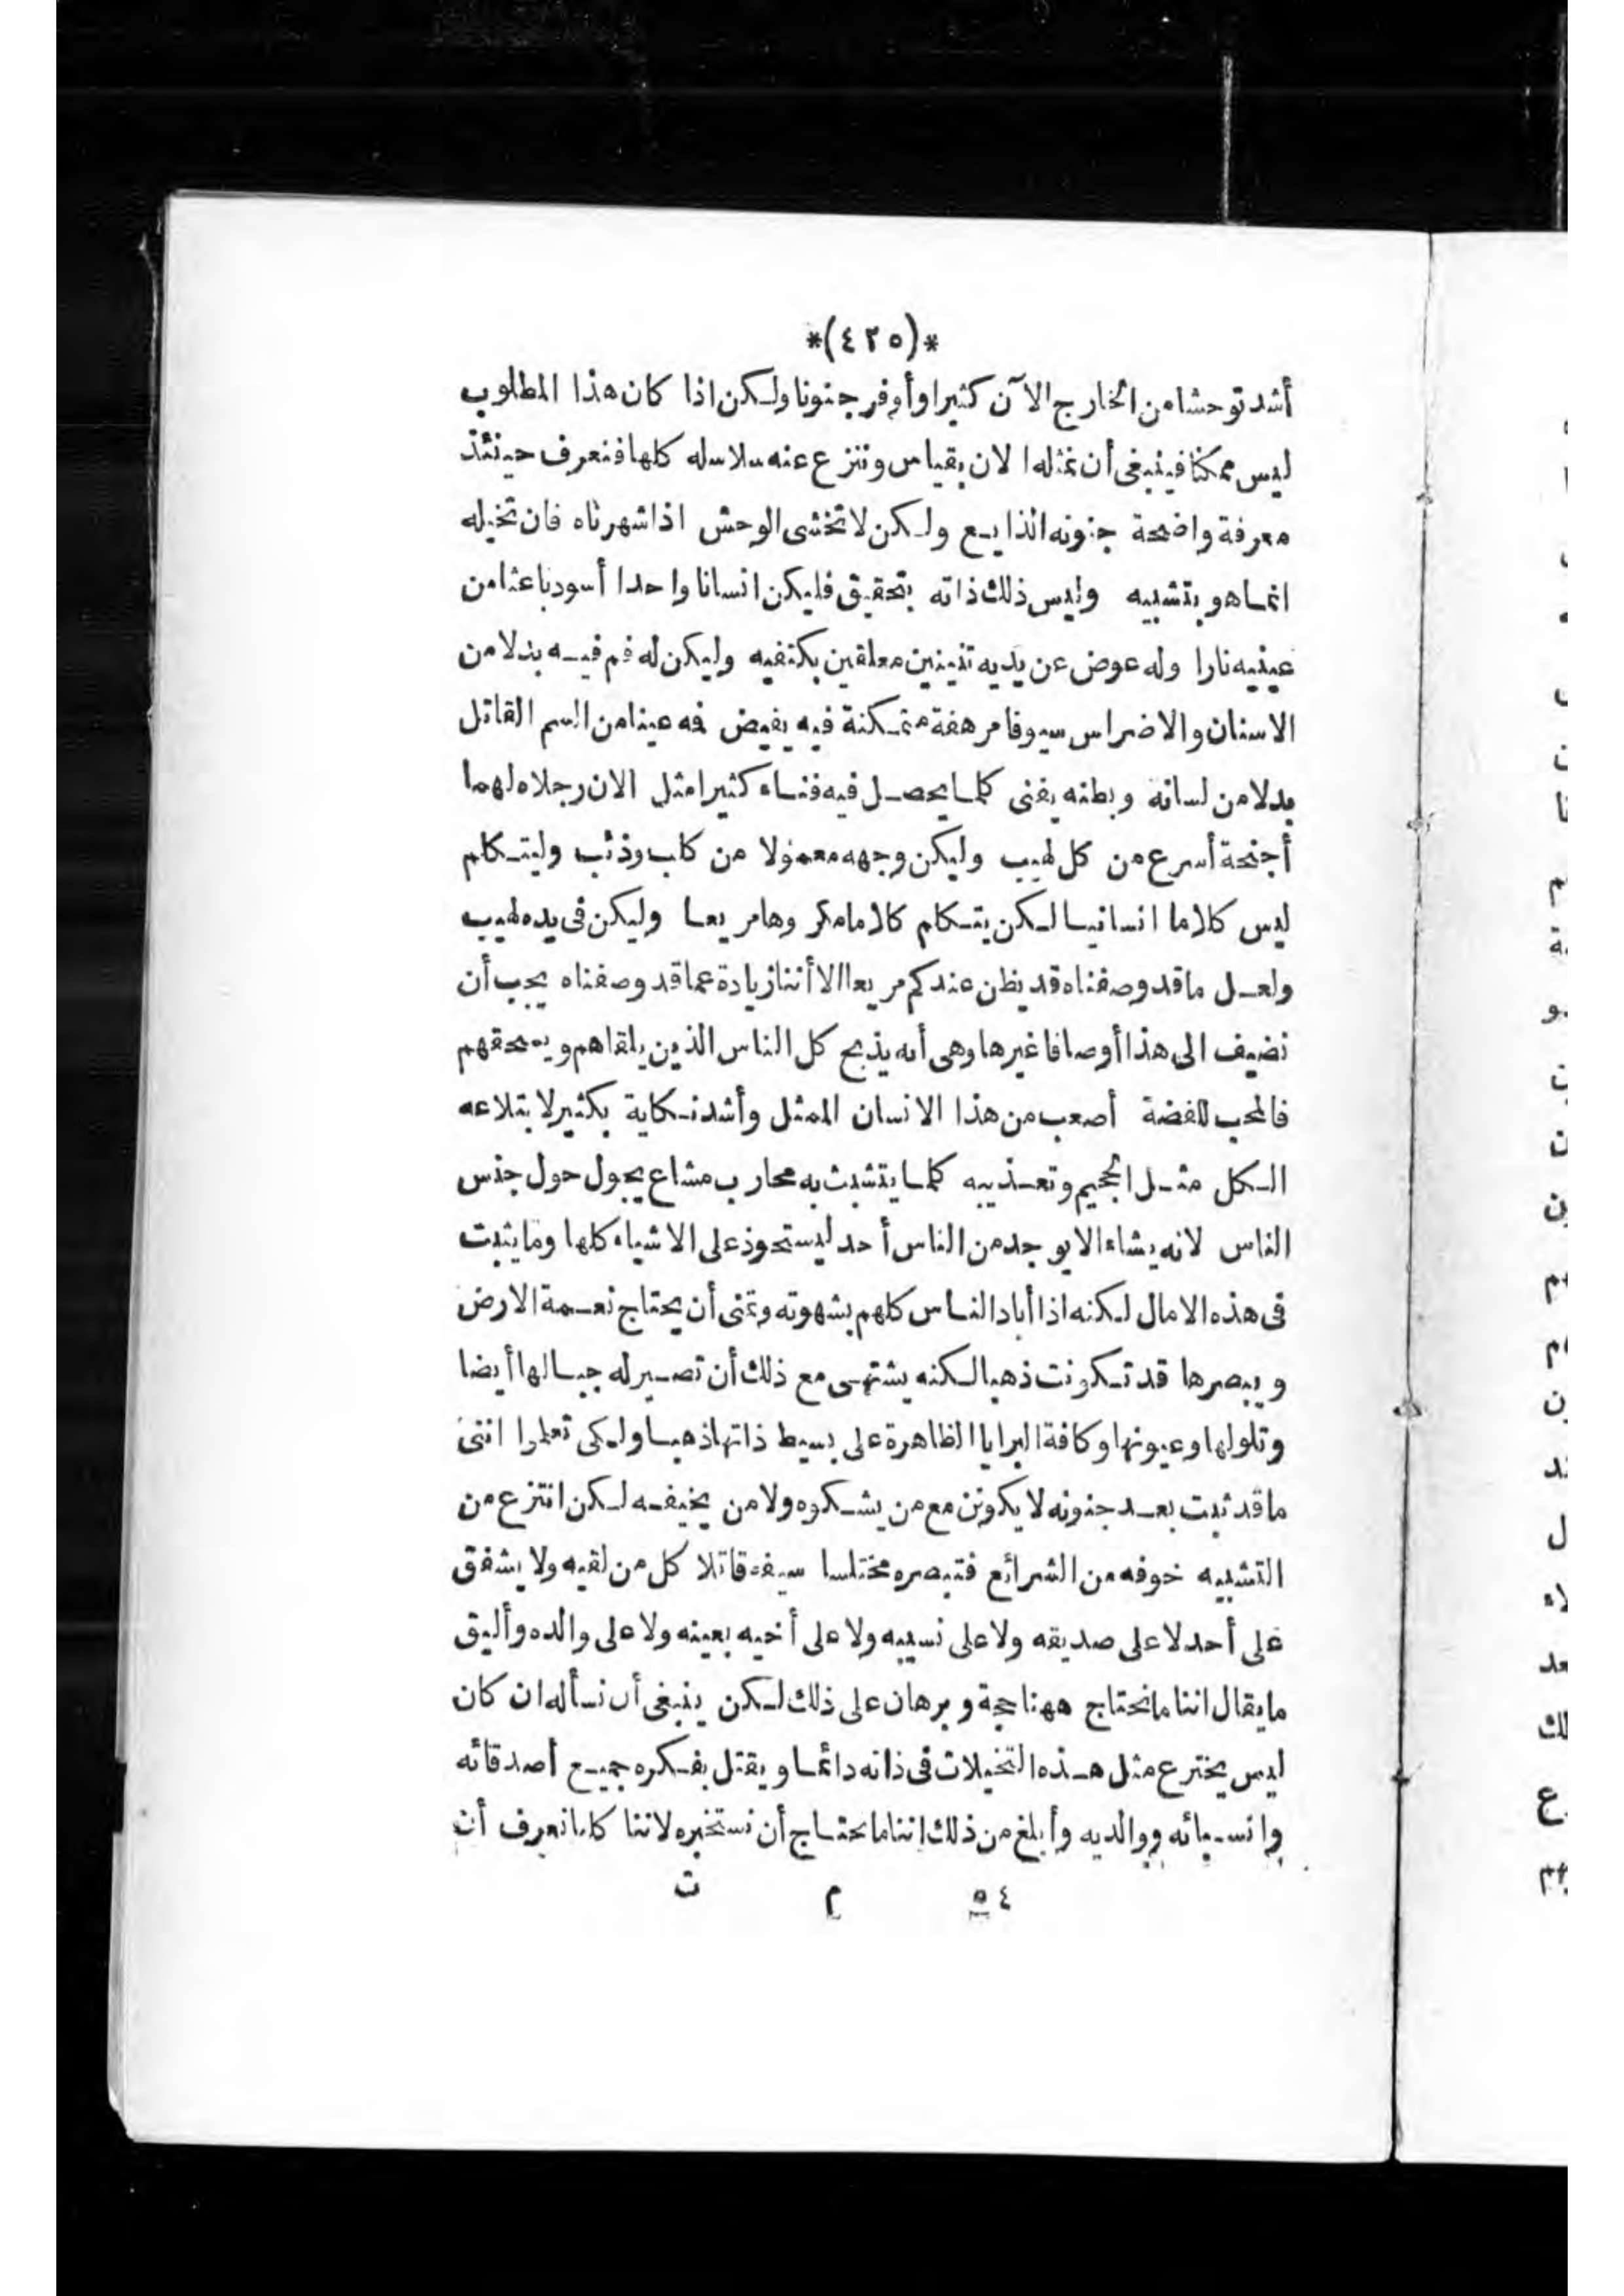 *(٤٢٥)*
أشد توحشا من الخارج الآن كثيرا وأوفر جنونا ولكن اذا كان هذا المطلوب
ليس ممكنا فينبغى أن نمثله الان بقياس وننزع عنه سلاسله كلها فنعرف حينئذ
معرفة واضحة جنونه الذايع ولكن لا تخشى الوحش اذا شهرناه فان تخيله
انما هو بتشبيه وليس ذلك ذاته بتحقيق فليكن انسانا واحدا أسود باعثا من
عينيه نارا وله عوض عن يديه تنينين معلقين بكتفيه وليكن له فم فيه بدلا من
الاسنان والاضراس سيوفا مرهفة متمكنة فيه يفيض فه عينا من السم القاتل
بدلا من لسانه وبطنه يفنى كلما يحصل فيه فناء كثيرا مثل الان رجلاه لهما
أجنحة أسرع من كل لهيب وليكن وجهه معمولا من كلب وذئب وليتكلم
ليس كلاما انسانيا لكن يتكلم كلاما مكروها مريعا وليكن فى يده لهيب
ولعل ما قد وصفناه قد يظن عندكم مريعا الا أننا زيادة عما قد وصفناه يجب أن
نضيف الى هذا أوصافا غيرها وهى أنه يذبح كل الناس الذين يلقاهم ويسحقهم
فالمحب للفضة أصعب من هذا الانسان الممثل وأشد نكاية بكثير لابتلاعه
الكل مثل الجحيم وتعذيبه كلما يتشبث به محارب مشاع يجول حول جنس
الناس لانه يشاء الا يوجد من الناس أحد ليستحوذ على الاشياء كلها وما يثبت
فى هذه الامال لكنه اذا أباد الناس كلهم بشهوته وتمنى أن يحتاج نعمة الارض
ويبصرها قد تكونت ذهبا لكنه يشتهى مع ذلك أن تصير له جبالها أيضا
وتلولها وعيونها وكافة البرايا الظاهرة على بسيط ذاتها ذهبا ولكى تعلموا اننى
ما قد ثبت بعد جنونه لا يكونن مع من يشكوه ولا من يخيفه لكن انتزع من
التشبيه خوفه من الشرائع فتبصره مختلسا سيفه قاتلا كل من لقيه ولا يشفق
على أحد لا على صديقه ولا على نسيبه ولا على أخيه بعينه ولا على والده وأليق
ما يقال اننا ما نحتاج ههنا حجة وبرهان على ذلك لكن ينبغى أن نسأله ان كان
ليس يخترع مثل هذه التخيلات فى ذاته دائما ويقتل بفكره جميع أصدقائه
وانسبائه ووالديه وأبلغ من ذلك اننا ما نحتاج أن نستخبره لاننا كلنا نعرف أن
٥٤ م ت